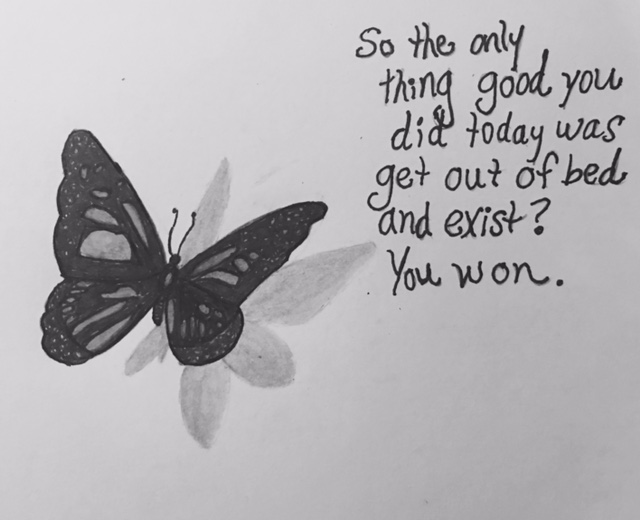 So the only
thing good you
did today was
get out of bed
and exist?
You won.